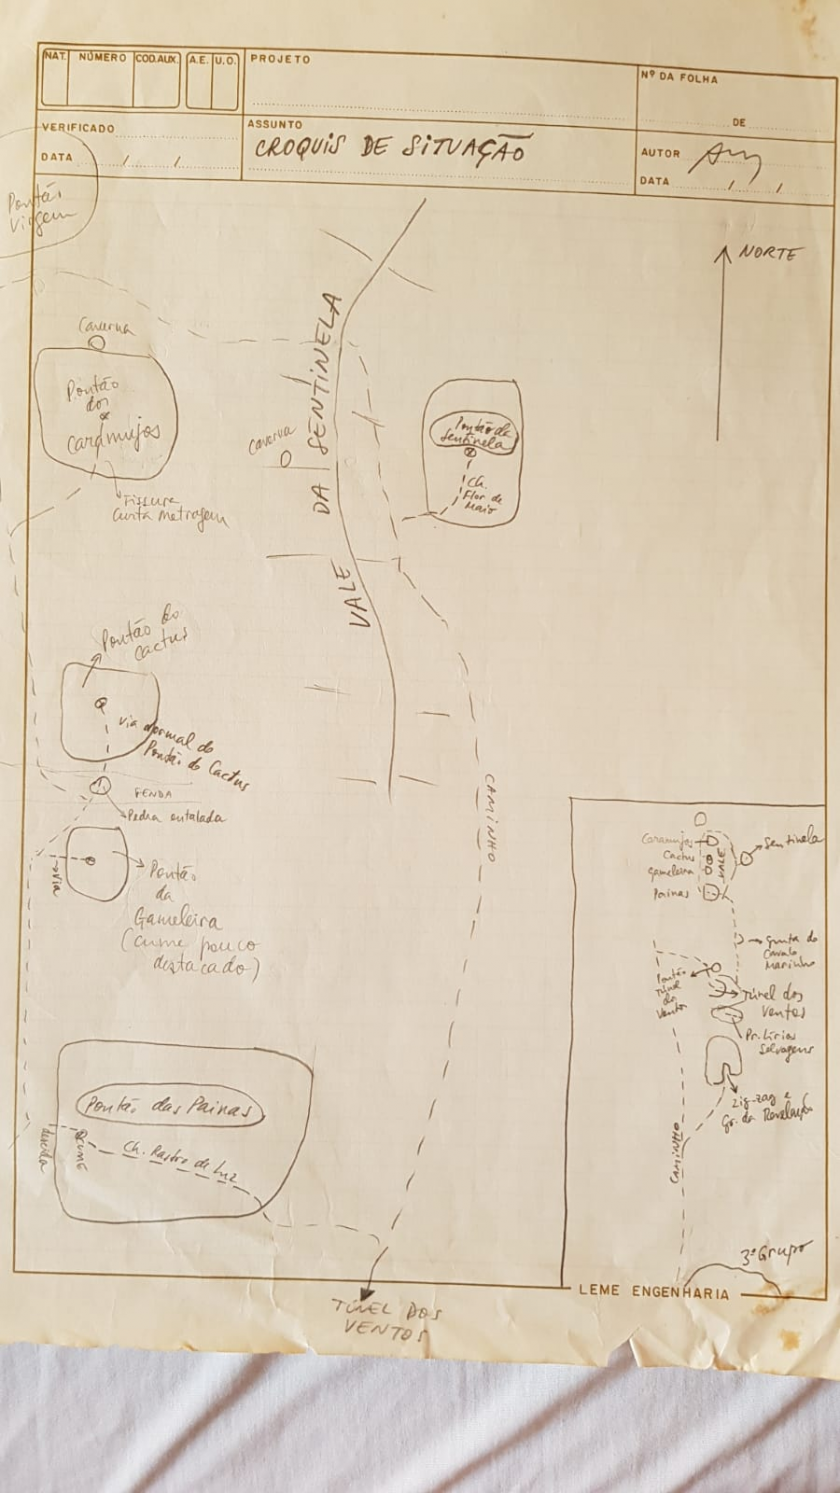 NAT.
NÚMERO
COD.AUX.
A.E.
U.O.
PROJETO
Nº DA FOLHA
DE
VERIFICADO
DATA / /
ASSUNTO
CROQUIS DE SITUAÇÃO
AUTOR
DATA / /
Pontão
Virgem
NORTE
Caverna
Pontão
dos
Caramujos
Fissura
Curta Metragem
Caverna
VALE DA SENTINELA
Pontão da
Sentinela
Ch.
Flor de
Maio
Pontão do
Cactus
via normal do
Pontão do Cactus
FENDA
Pedra entalada
via
Pontão
da
Gameleira
(cume pouco
destacado)
CAMINHO
Pontão das Painas
descida
CUME
Ch. Rastro de Luz
TÚNEL DOS
VENTOS
Caramujos
Cactus
Gameleira
Painas
VALE
Sentinela
Gruta do
Cavalo
Marinho
Pontão
Túnel
do
Ventos
Túnel dos
Ventos
Pr. Lírios
Selvagens
Zig-zag e
Gr. da Revelação
CAMINHO
3º Grupo
LEME ENGENHARIA